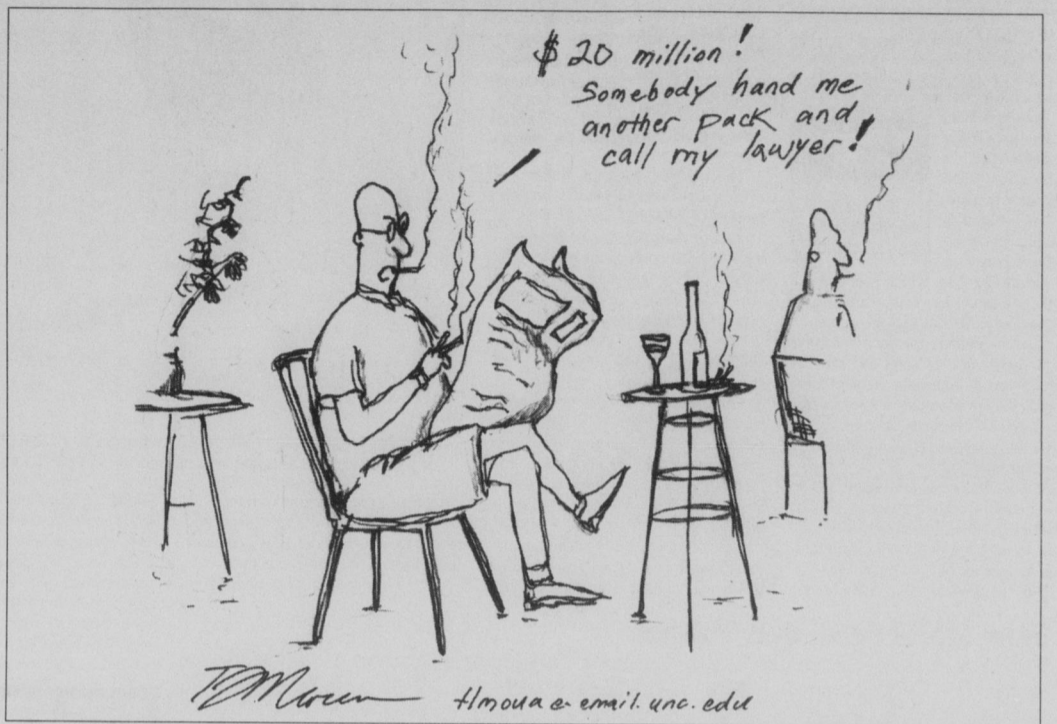 $20 million!
Somebody hand me
another pack and
call my lawyer!
tlmoua@email.unc.edu